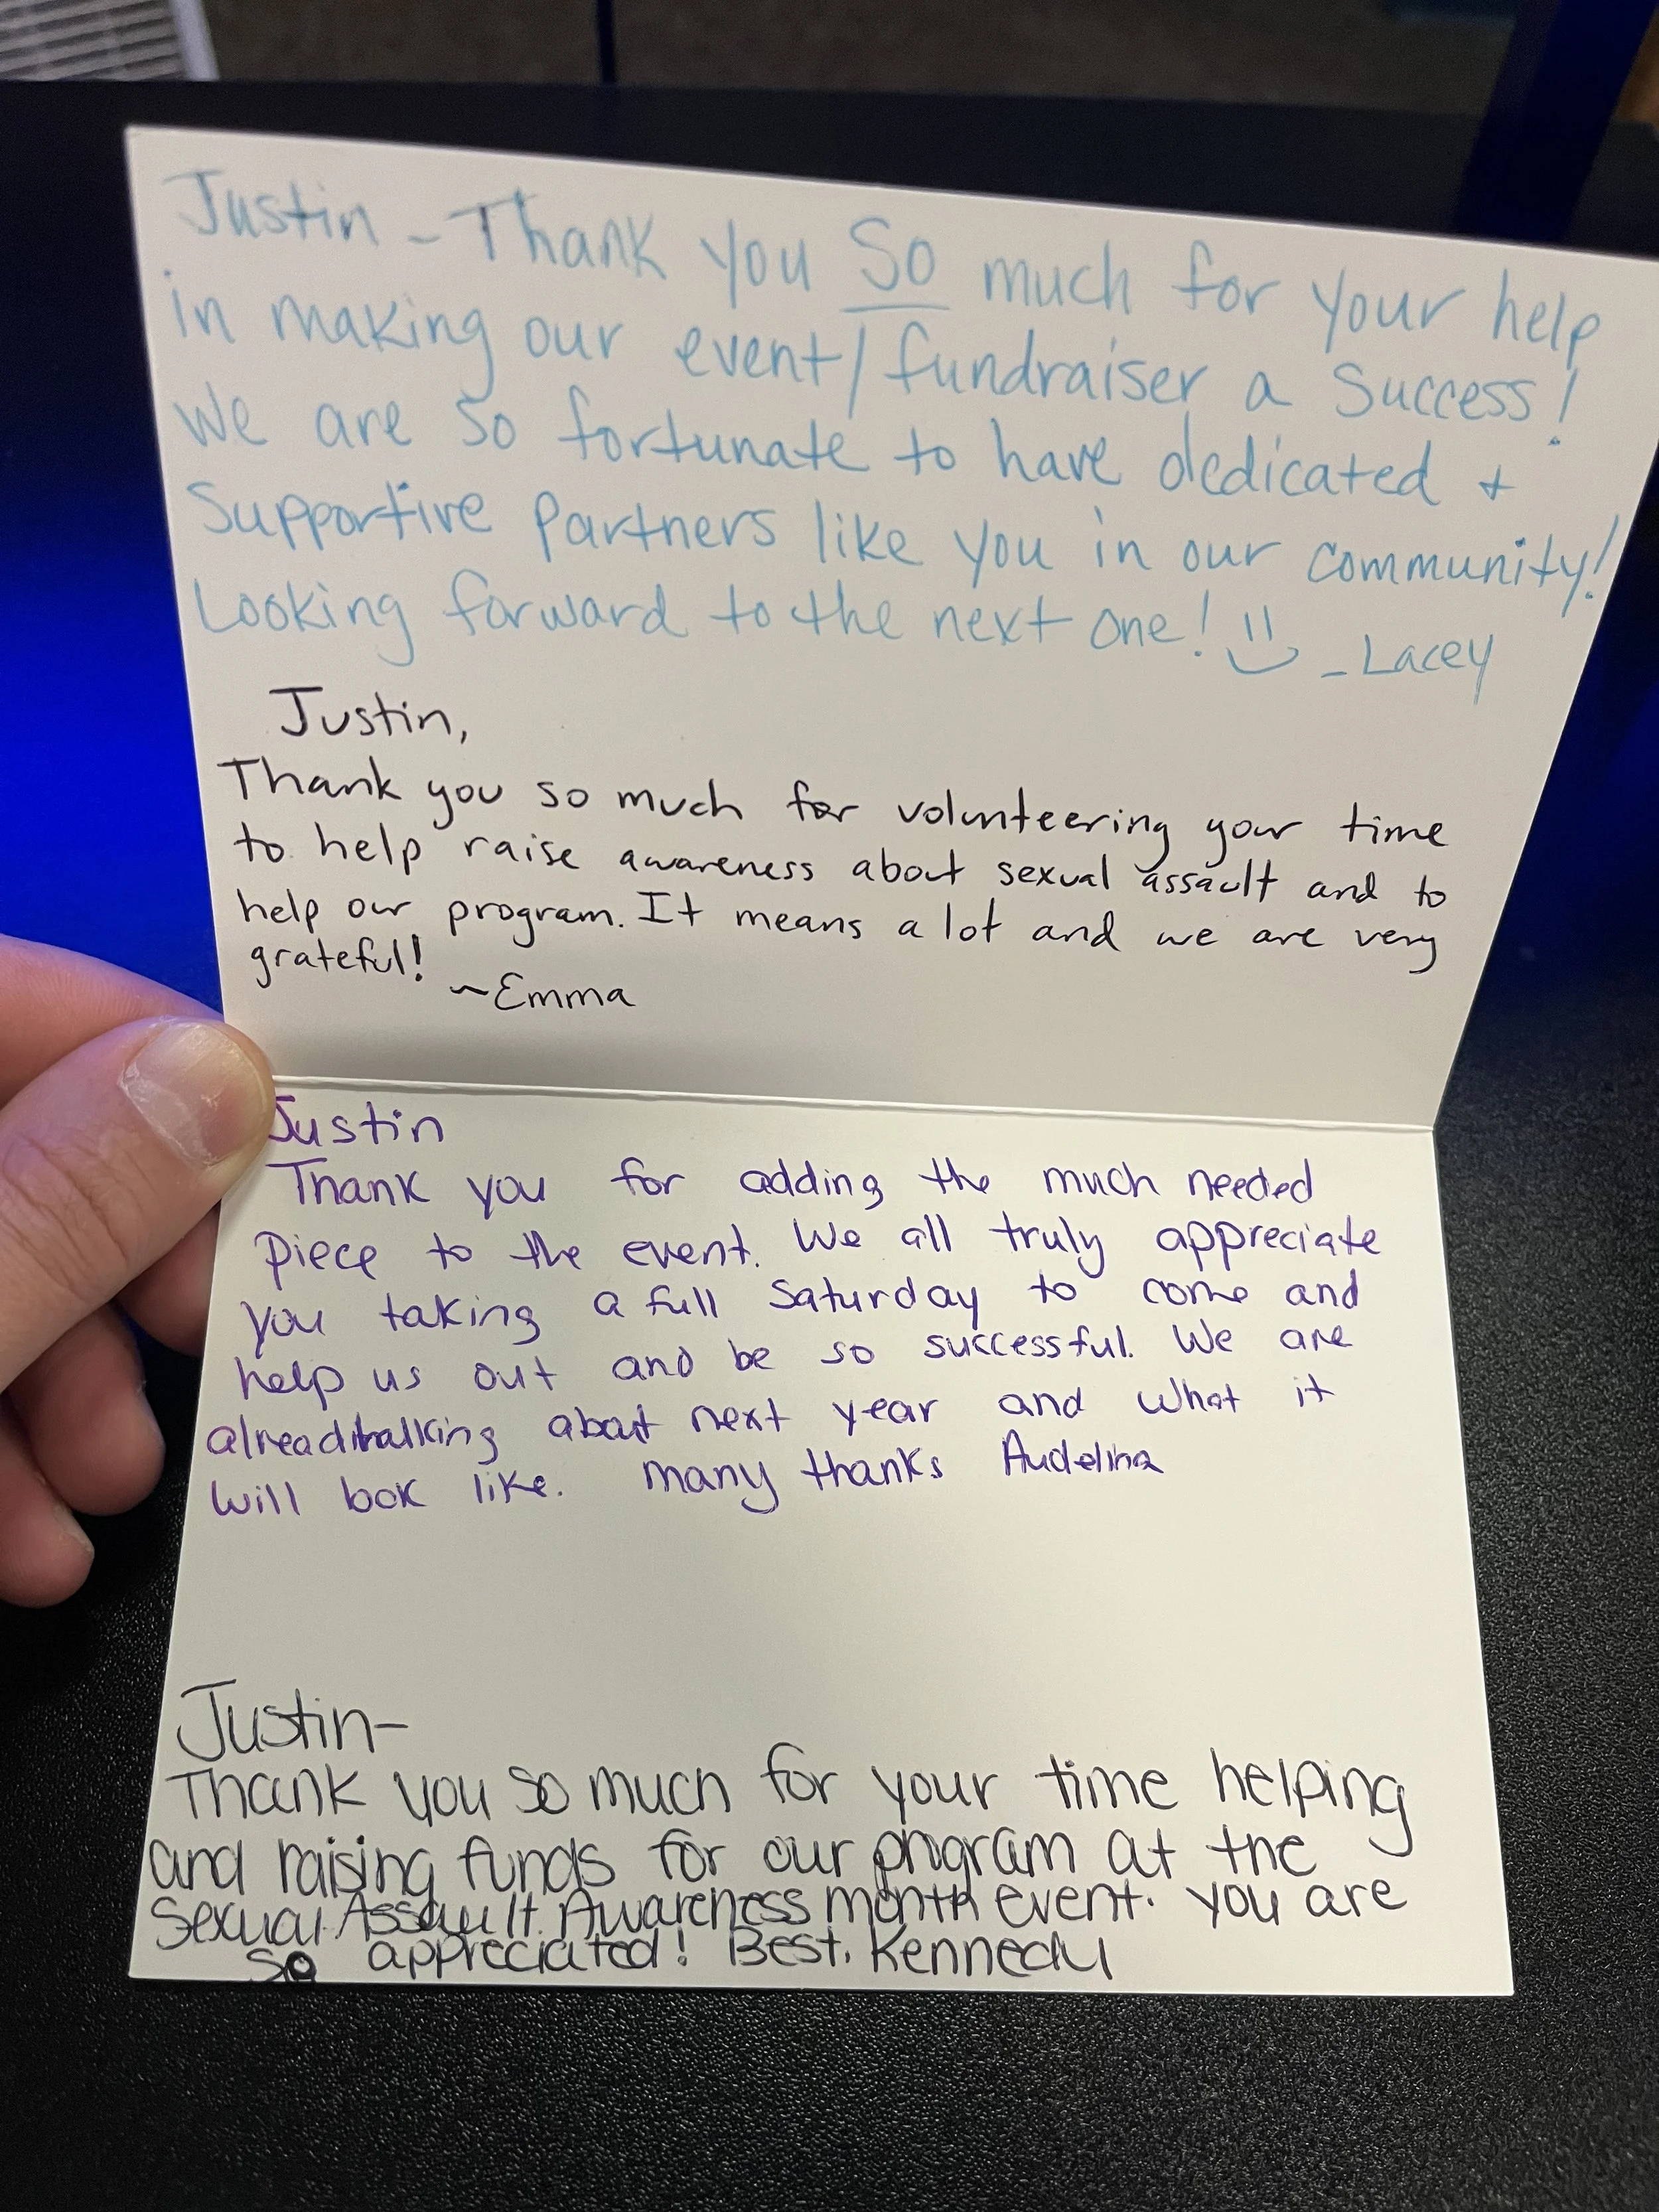 Justin - Thank you So much for your help
in making our event/fundraiser a Success!
We are so fortunate to have dedicated +
Supportive Partners like you in our community!
Looking forward to the next one! :) - Lacey
Justin,
Thank you so much for volunteering your time
to help raise awareness about sexual assault and to
help our program. It means a lot and we are very
grateful!
~Emma
Justin
Thank you for adding the much needed
piece to the event. We all truly appreciate
you taking a full Saturday to come and
help us out and be so successful. We are
already talking about next year and what it
will look like. Many thanks Audelina
Justin-
Thank you so much for your time helping
and raising funds for our program at the
Sexual Assault Awareness month event. You are
so appreciated! Best, Kennedy